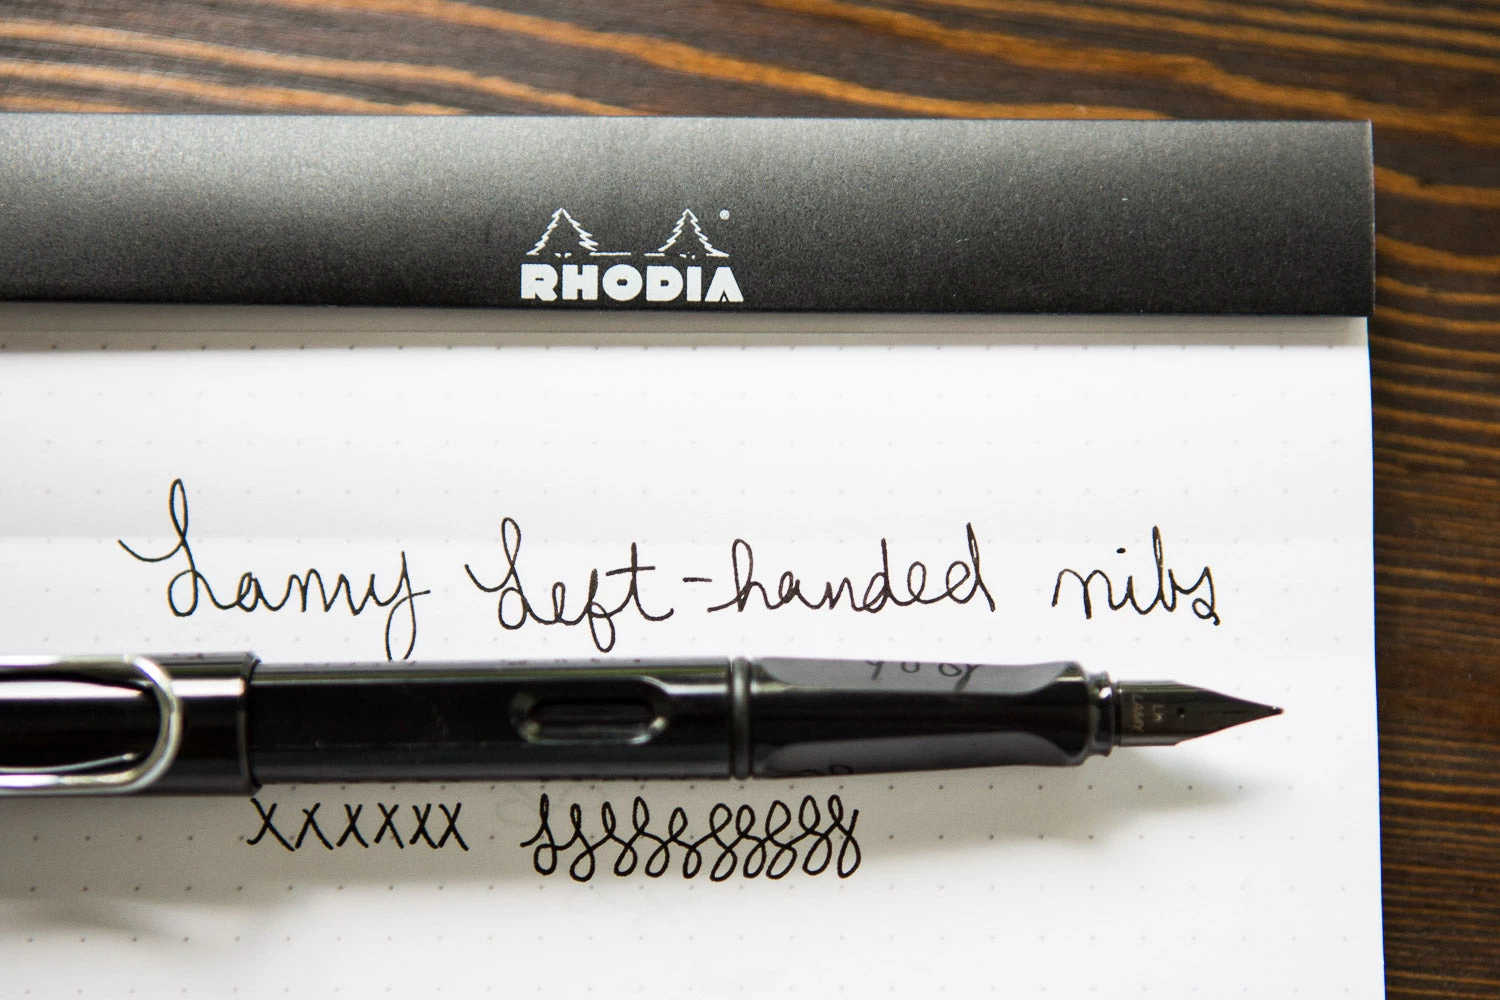 ®
RHODIA
Lamy Left-handed nibs
LH
LAMY
xxxxxx